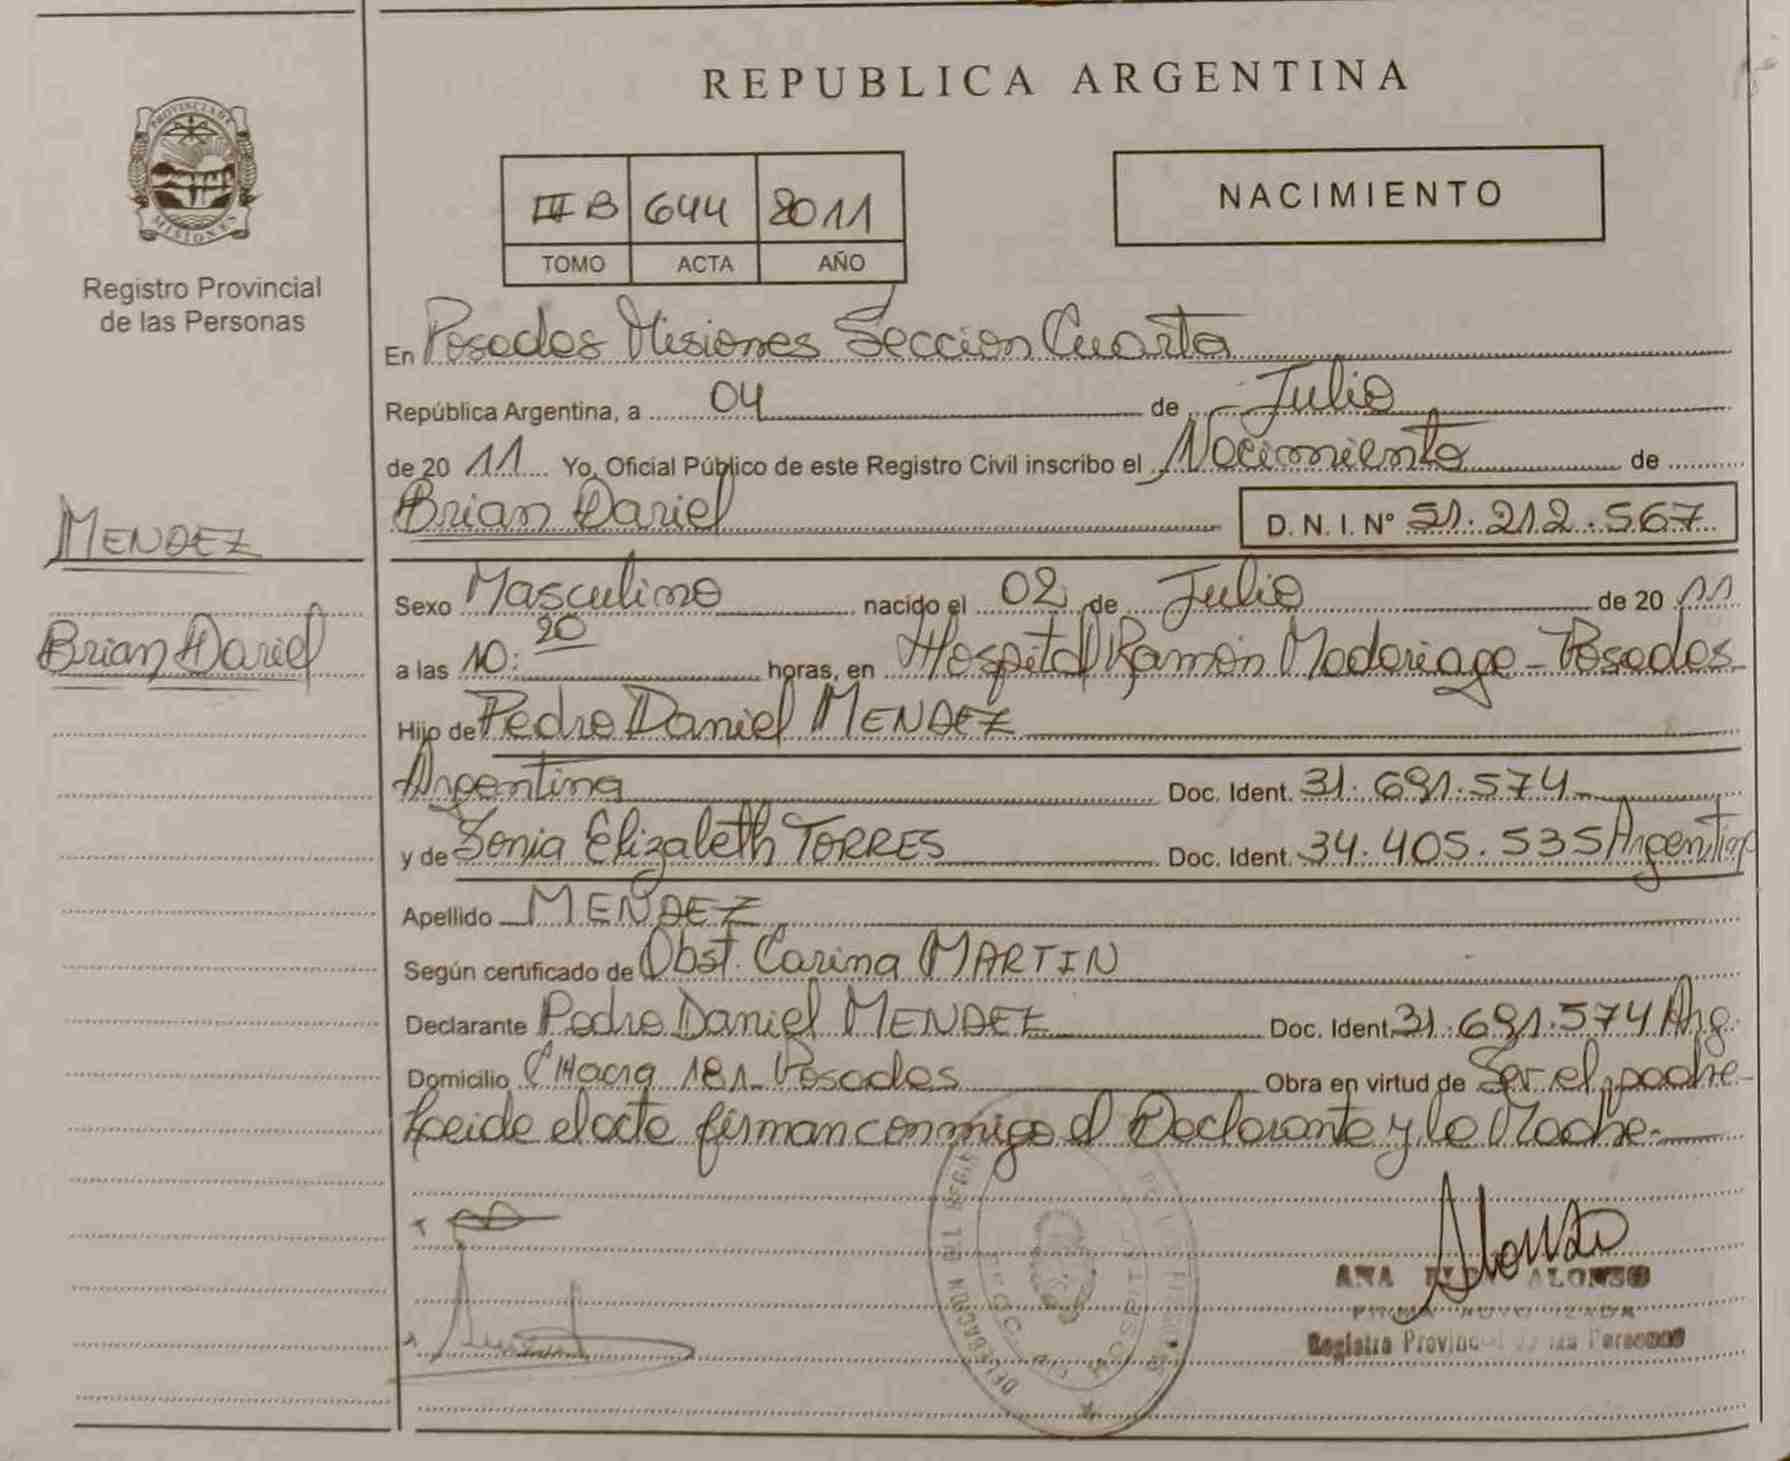 REPUBLICA ARGENTINA
PROVINCIA DE
MISIONES
Registro Provincial
de las Personas
III B 644 2011
TOMO ACTA AÑO
NACIMIENTO
En Posadas Misiones Seccion Cuarta
República Argentina, a 04 de Julio
de 20 11 Yo, Oficial Público de este Registro Civil inscribo el Nacimiento de
Brian Dariel D. N. I. Nº 51.212.567
MENDEZ
Brian Dariel
Sexo Masculino nacido el 02 de Julio de 20 11
a las 10:20 horas, en Hospital Ramón Madariaga - Posadas
Hijo de Pedro Daniel MENDEZ
Argentina Doc. Ident. 31.691.574
y de Sonia Elizabeth TORRES Doc. Ident. 34.405.535 Argentina
Apellido MENDEZ
Según certificado de Obst. Carina MARTIN
Declarante Pedro Daniel MENDEZ Doc. Ident. 31.691.574 Arg.
Domicilio CHacra 181 - Posadas Obra en virtud de Ser el padre -
Leida el acta firman conmigo el Declarante y la Madre.-
ANA ALONSO
Registro Provincial de las Personas